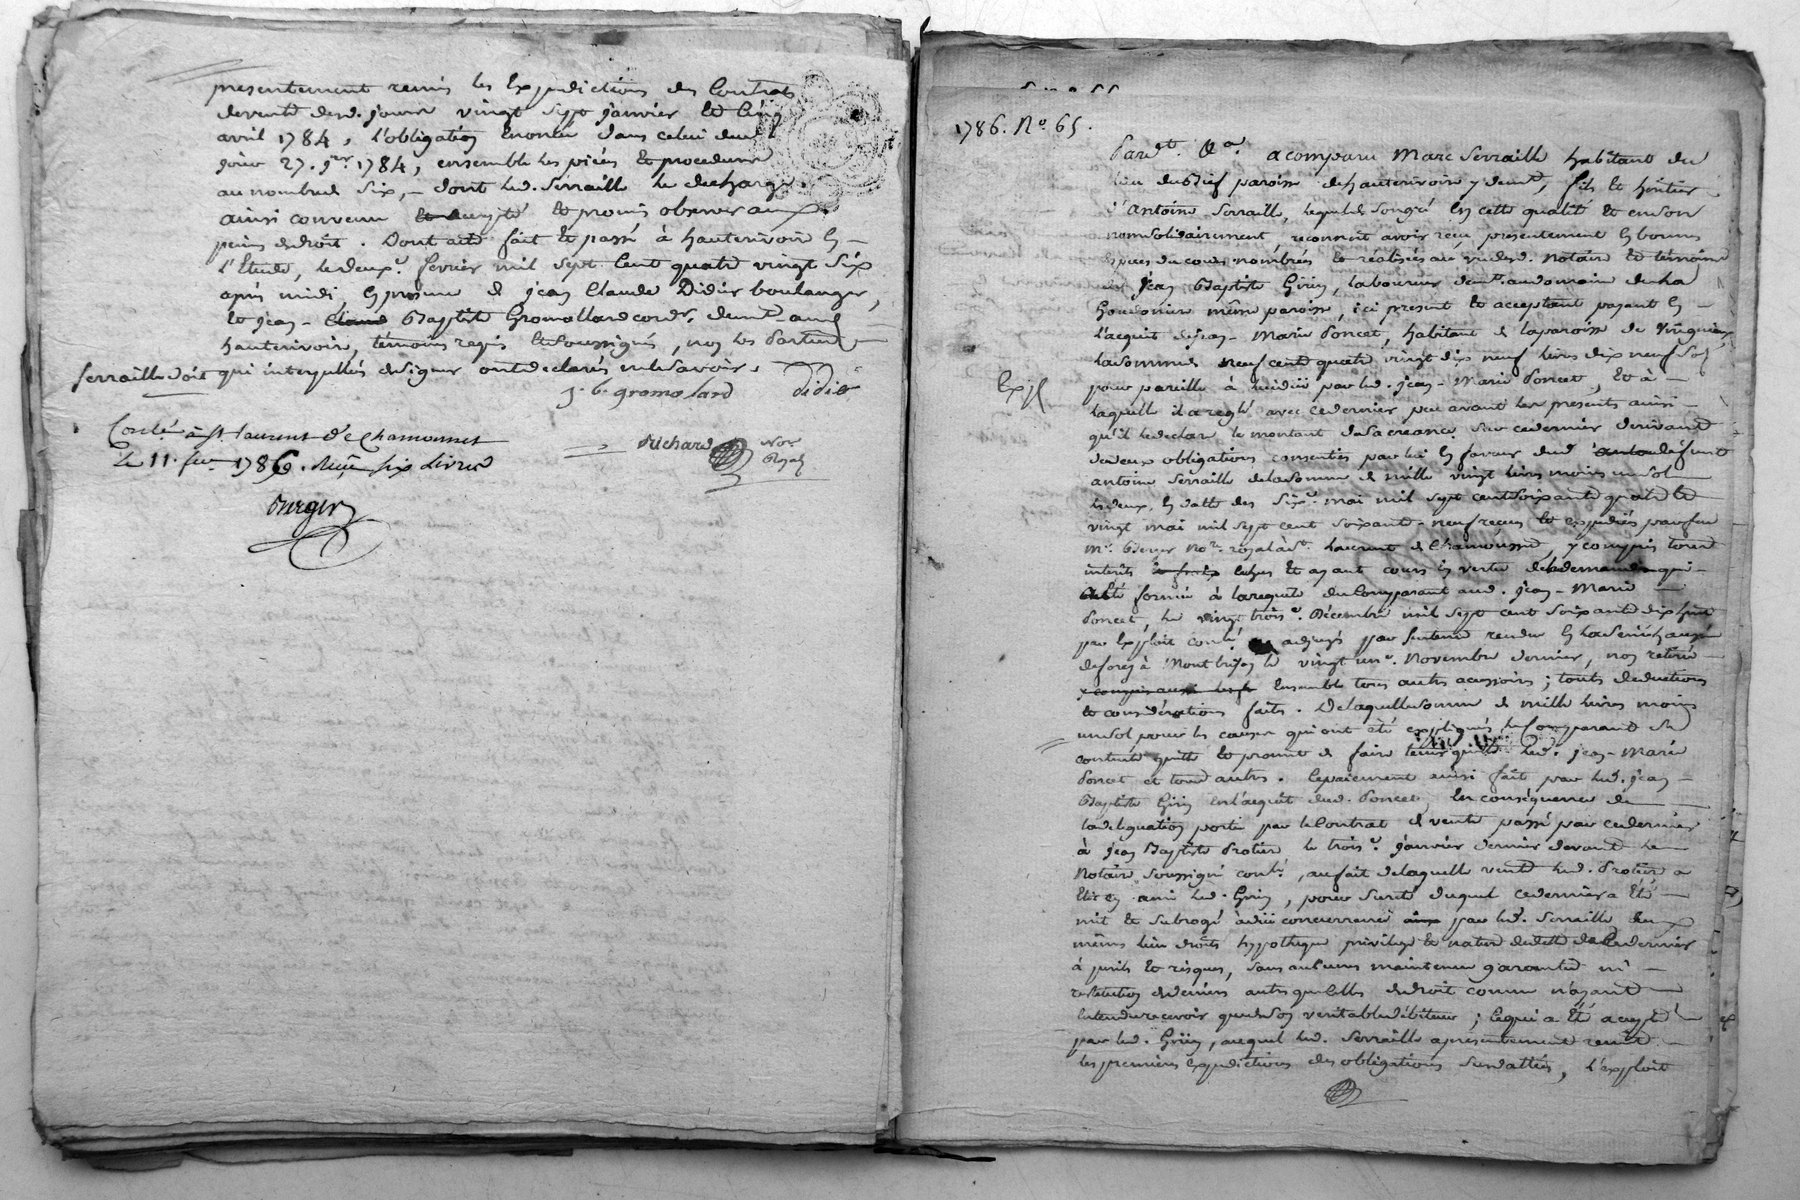 presentement remis les Expeditions des Contrats
devente desd. jours vingt sept janvier Et Cinq
avril 1784, l'obligation Enoncée dans celui dud.
jour 27. jer 1784, ensemble les pièces Et procedures
au nombre de six, – dont led. Serraille le decharge.
ainsi convenu Et promis observer aux
peines de droit. Dont acte fait Et passé à hauterivoire En –
l'Etude, le deuxe. fevrier mil sept Cent quatre vingt Six
après midi, En presence de jean Claude Didier boulanger,
Et jean – Claude Baptiste Gromollard cordr. demt. aud.
hauterivoire, témoins requis Et soussignés, non les Parties –
Serraille soit qui interpellés designer ont declarés nelesavoir.
j. b. gromolard didier
Conlé. à St. laurent De Chamousset
Le 11. fer. 1786. Reçu six Livres
Richard Nore. Royal
Berger
1786. No. 65.
Pardt. &a. a comparu Marc Serraille habitant du
lieu du Brief paroisse de hauterivoire y demt., fils Et heritier
d'Antoine Serraille, lequel de Songré En cette qualité Et en son
nom solidairement, reconnoit avoir reçu presentement En bonnes
Especes du cours nombrées Et réalisées au vu desd. notaire Et témoins
de jean Baptiste Girin, laboureur demt. au domaine de la
même paroisse, ici present Et acceptant payant En –
l'acquit de jean – Marie Poncet, habitant de la paroisse de
la somme de neuf cent quatre vingt dix neuf livres dix neuf sols
Exp.
pour pareille à lui düe par led. jean – Marie Poncet, Et à –
laquelle il a reglé avec ce dernier peu avant les présentes ainsi –
qu'il le declare le montant de sa creance sur ce dernier derivant
de deux obligations consenties par lui En faveur dud. défunt
antoine Serraille de la somme de mille vingt livres moins un sol
les deux, En datte des Sixe. mai mil sept cent soixante quatre Et
vingt mai mil sept cent soixante – neuf reçues Et expediées par feu
Me. Berger Nore. royal à St. Laurent de Chamousset, y compris tous
interets Et frais Echus Et ayant cours En vertu de la demande qui –
a Eté formée à la requete du Comparant aud. jean – Marie –
Poncet, le vingt troise. Décembre mil sept cent soixante dix huit
par Exploit conlé. adjugés par sentence rendue En la sénéchaussée
de forez à Montbrison le vingt une. Novembre dernier, non retirée –
y compris aussi les fr Ensemble tous autres accessoires; toutes deductions
Et considérations faites. De laquelle somme de mille livres moins
un sol pour les causes qui ont été expliquées le Comparant Se
contente quitte Et promet de faire tenir quitte led. jean – Marie
Poncet et tous autres. Le paiement ainsi fait par led. jean –
Baptiste Girin En l'acquit dud. Poncet, En conséquence de –
la deleguation portée par le Contrat de vente passé par ce dernier
à jean Baptiste Protière le troise. janvier dernier devant le –
Notaire soussigné conlé., au fait de laquelle vente led. Protière a
Elû En ami led. Girin, pour sureté duquel ce dernier a Eté –
mit Et subrogé à düe concurrence par led. Serraille aux
mêmes lieu droits hypotheque privilege Et nature de dette de ce dernier
à perils Et risques, sans aucunes maintenue garantie ni –
restitution de deniers autres que Celles de droit comme n'ayant
Entendu recevoir que de son veritable débiteur; ce qui a Eté accepté
par led. Girin, auquel led. Serraille a presentement remit –
les premieres expeditions des obligations susdattées, l'exploit